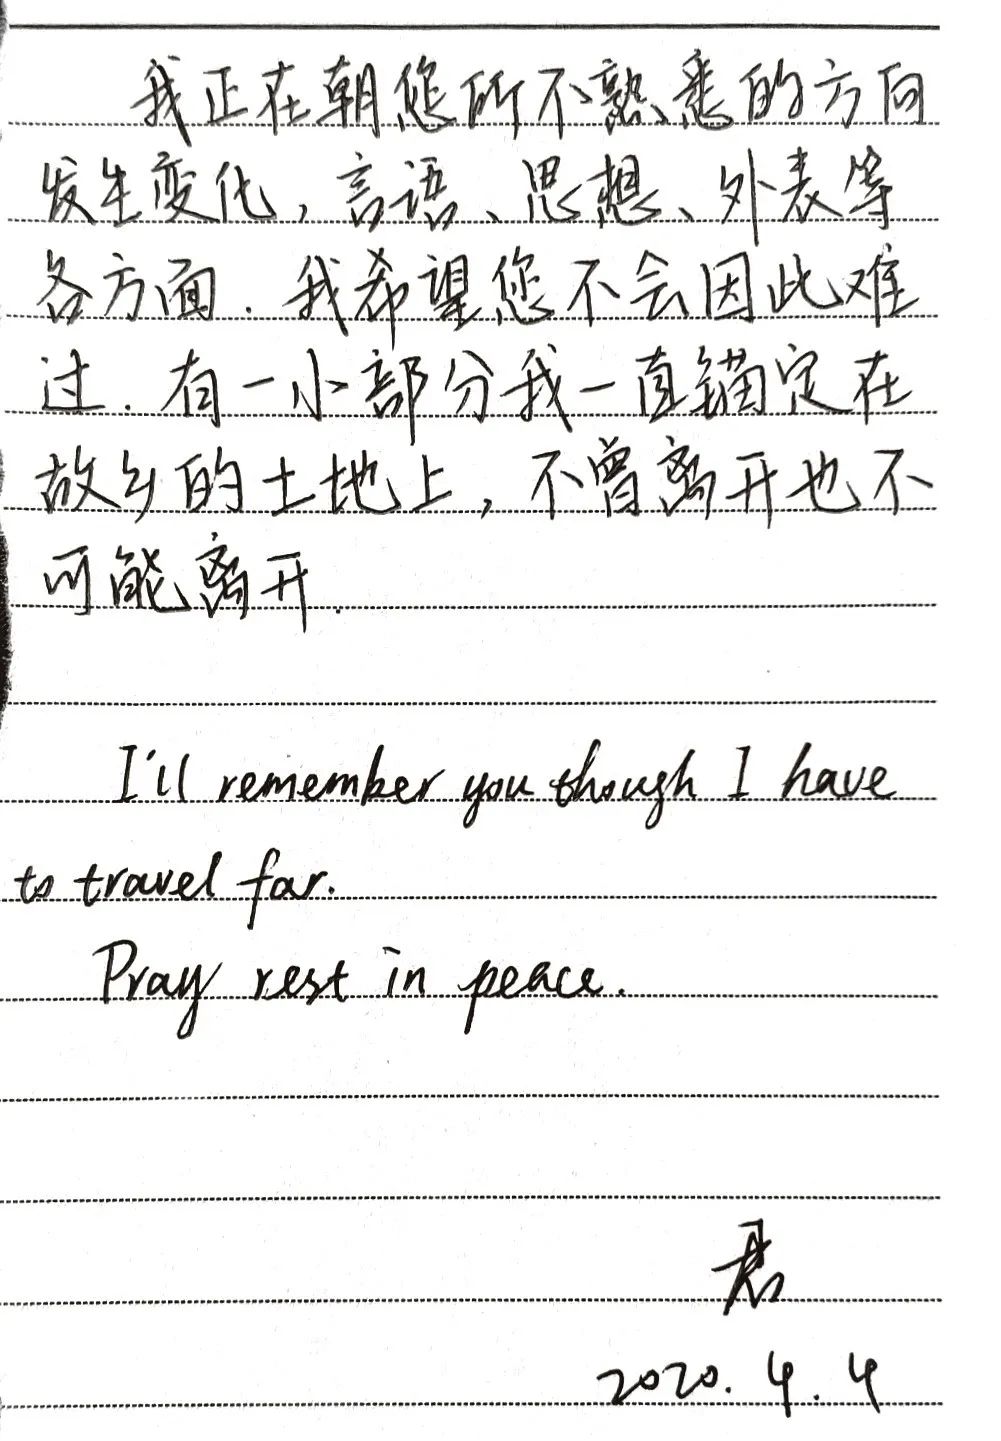 我正在朝您所不熟悉的方向
发生变化，言语、思想、外表等
各方面. 我希望您不会因此难
过. 有一小部分我一直锚定在
故乡的土地上，不曾离开也不
可能离开.
I'll remember you though I have
to travel far.
Pray rest in peace.
君
2020. 4. 4